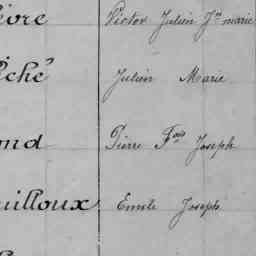 èvre Victor Julien Jn marie
Ché Julien Marie
ond Pierre Fois Joseph
uilloux Emile Joseph